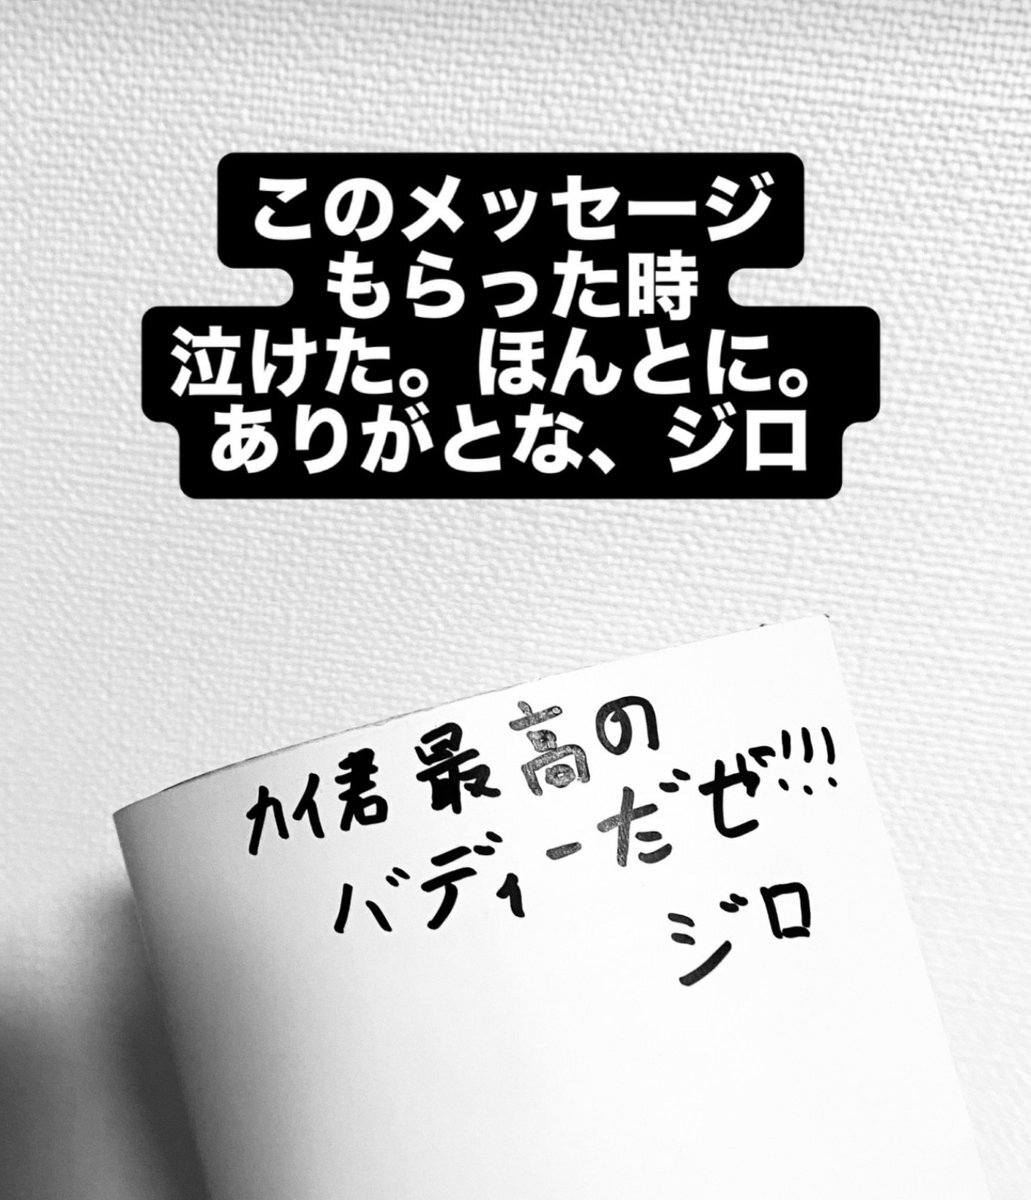 このメッセージ
もらった時
泣けた。ほんとに。
ありがとな、ジロ
カイ君最高の
バディーだぜ!!!
ジロ